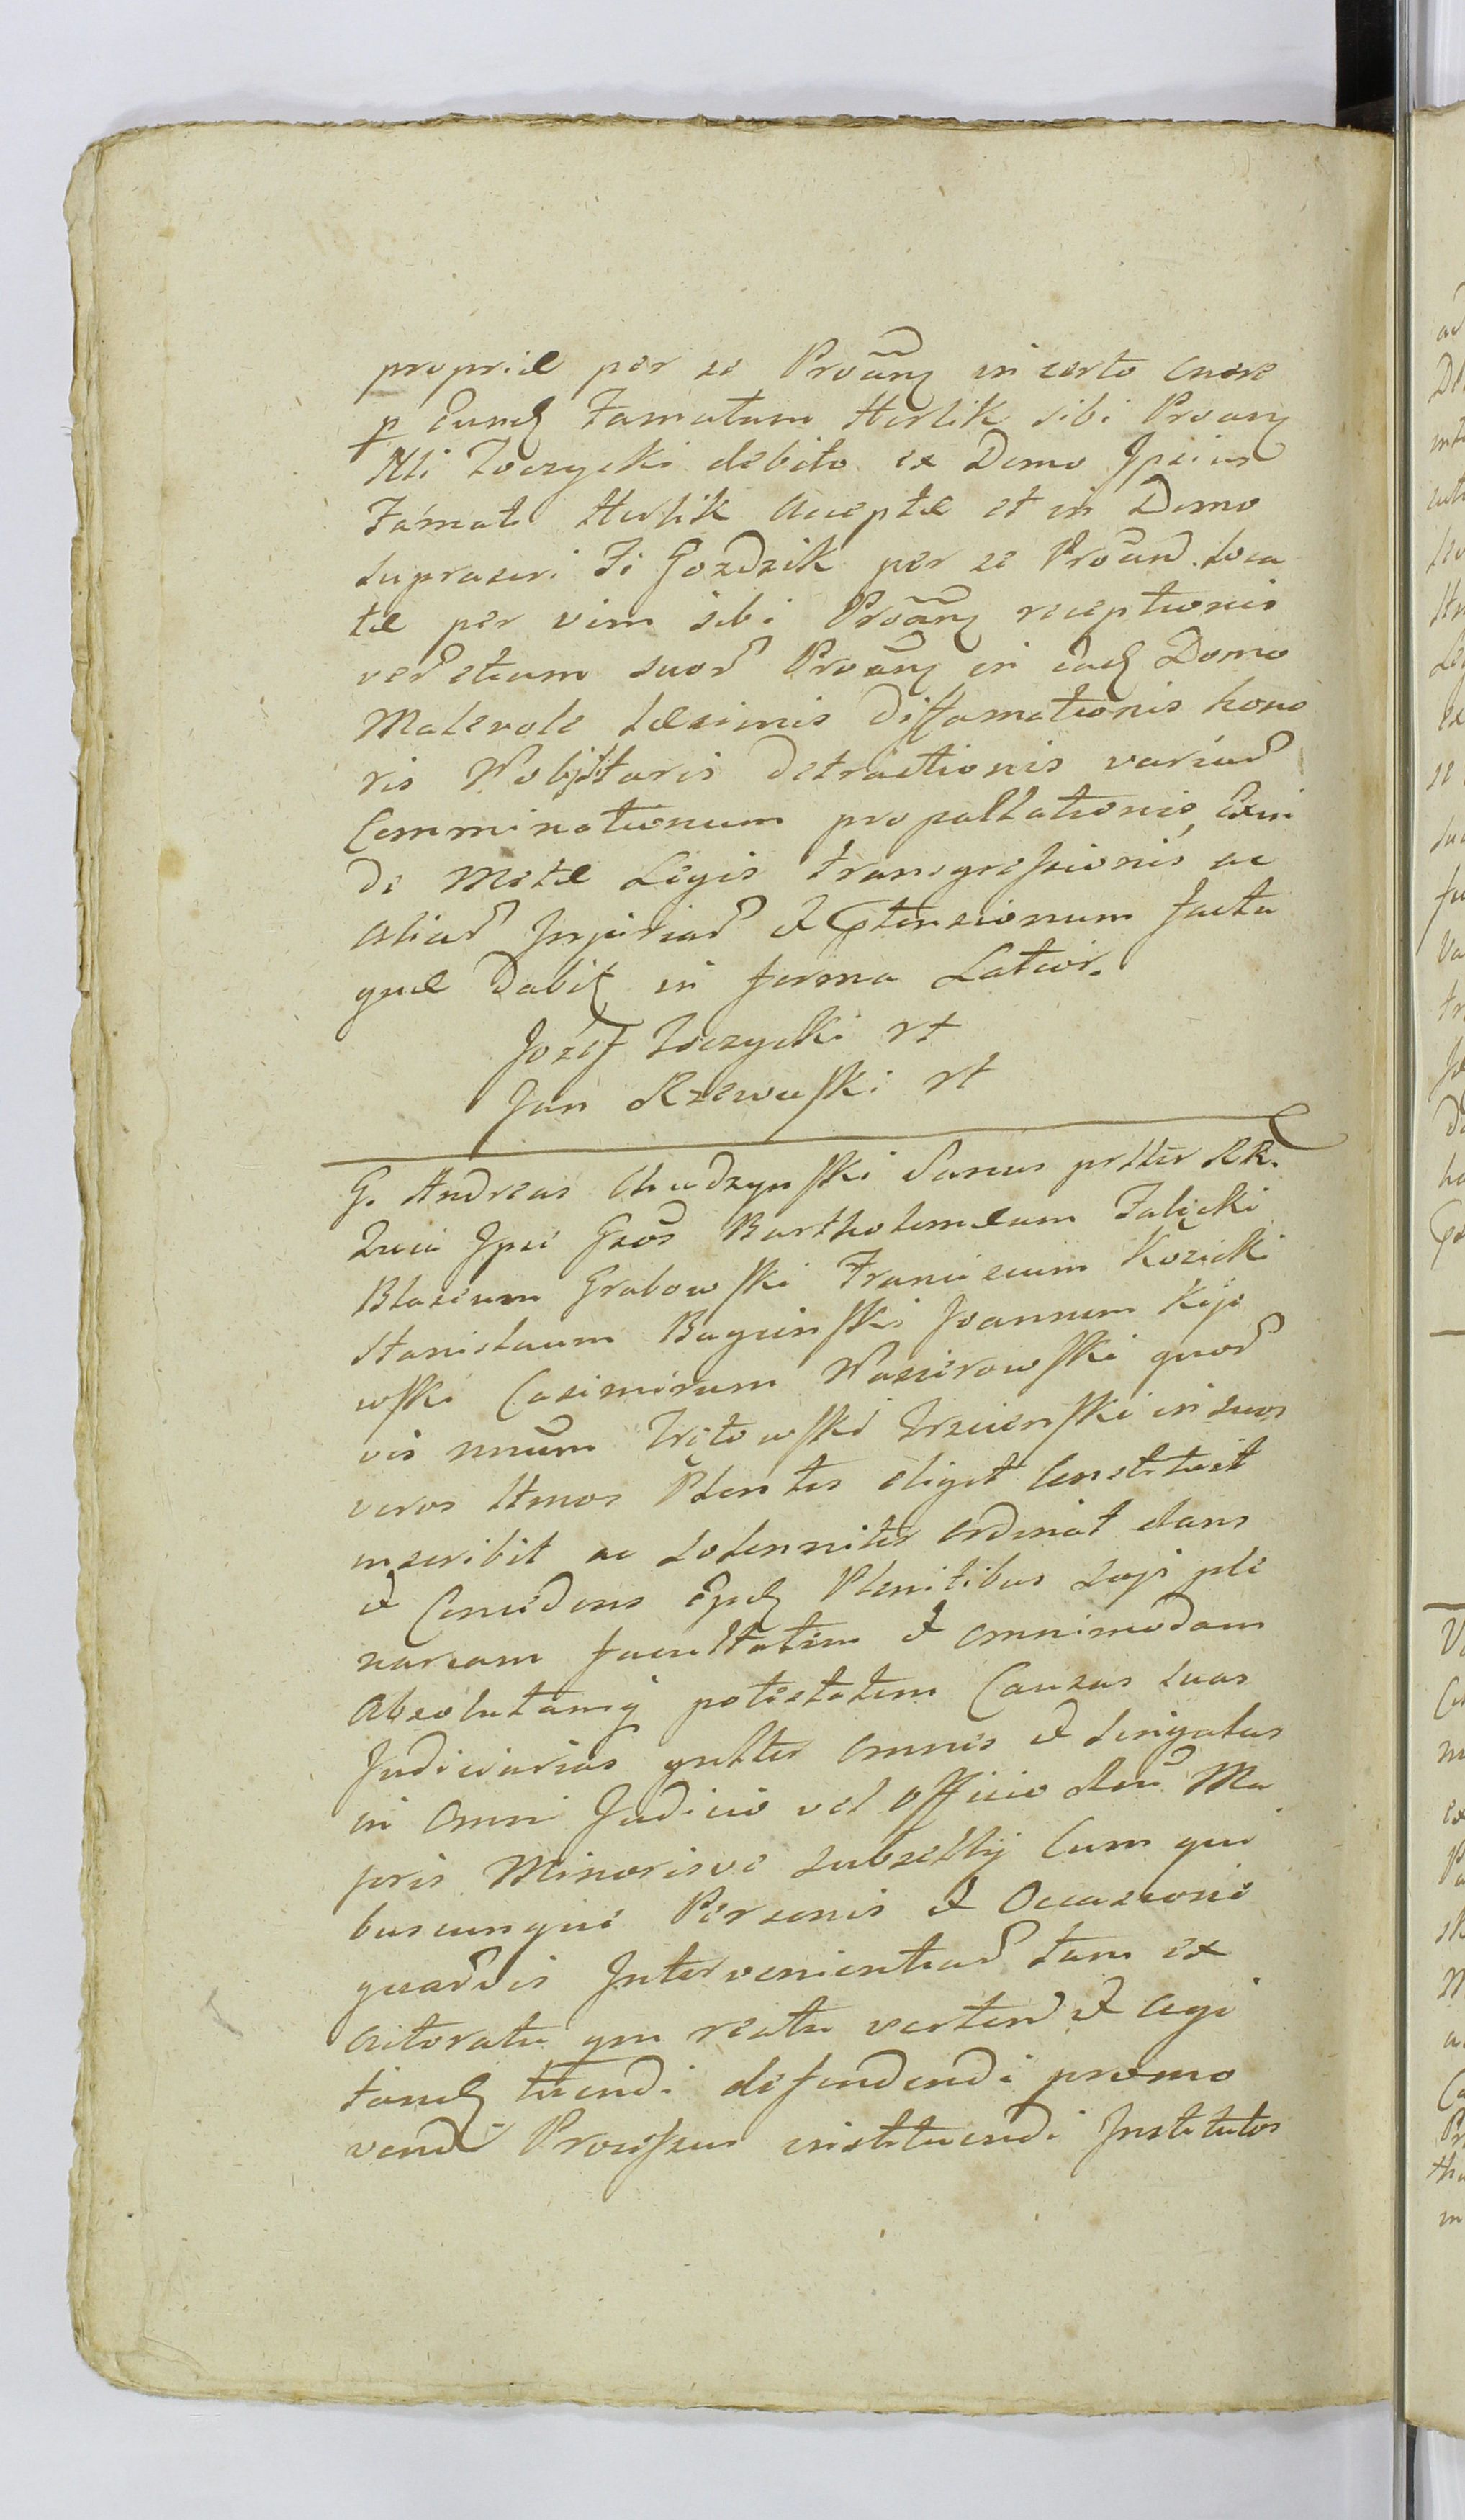 propriæ per se Proãnẽ in certo onere
p Eund Famatum Herlik sibi Proanẽ
Nli Zoczycki debito ex Domo Ipsius
Famati Herlik acceptæ et in Domo
suprascri Fi Gozdzik per se Proãnd loca
tæ per vim sibi Proãnẽ receptionis
verstium suor Proanẽ in ead Domo
Malevole Læsionis diffamationis hono
ris detractionis variar
Comminationum propallationis, Exin
de Metæ Legis transgressionis ac
aliar Injuriar & Ptensionum facta
que dabit in forma Latior.
Jozef Zoczycki
Jan Rzewuski
G. Andreas Chudzynski Sanus prtter RR.
Srcia Ipse Gsos Bartholomæum Falęcki
Blasium Grabowski Franciscum Kozicki
Stanislaum Baginski Joannem Kijo
wski Casimirum Wasierowski quor
vis unum Trzcienski in suos
veros Ltmos Plentes eligit Constituit
inscribit ac Solenniter ordinat dans
& Concedens Eisd Plenitibus suis ple
nariam facultatem & omnimodam
absolutamq potestatem Causas suas
Judiciarias gnltter omnes & singulas
in omni Judicio vel officio Rni Ma
joris Minorisve subsellij Cum qui
buscunque Personis & Occasione
quarvis Intervenientiar tam ex
actoratu qm reatu verten & agi
tand tuendi defendendi promo
vendi Processus instituendi Institutos